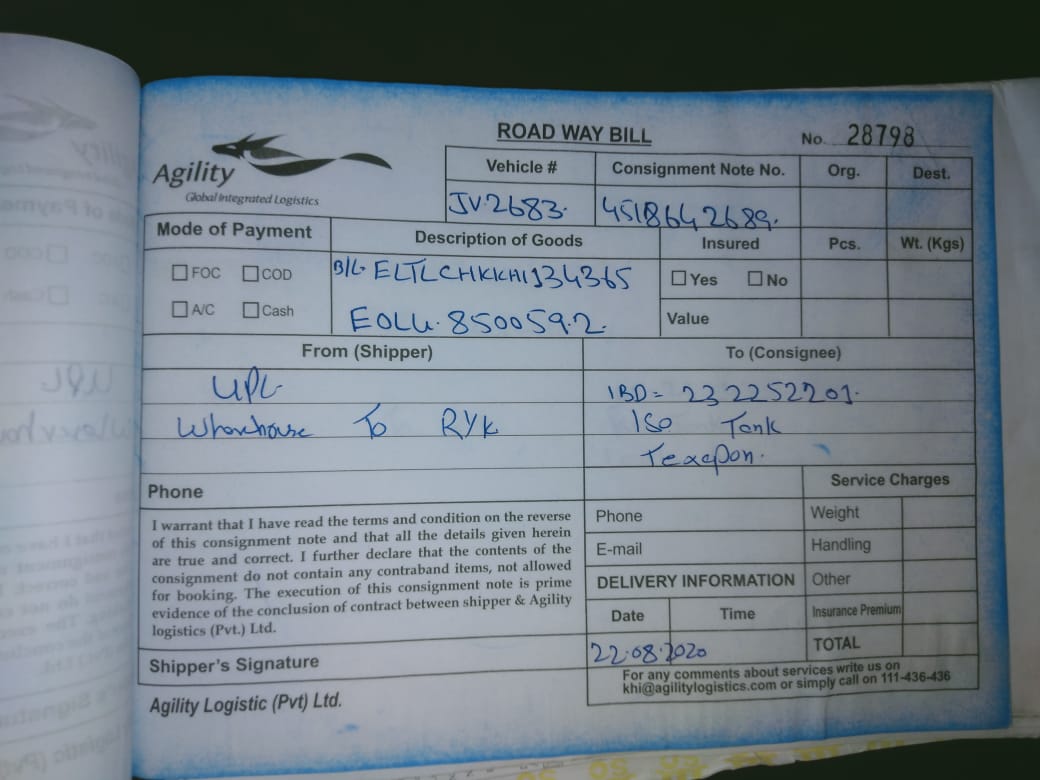 ROAD WAY BILL
No. 28798
Agility
Global Integrated Logistics
Vehicle # Consignment Note No. Org. Dest.
JV.2683. 4518642689.
Mode of Payment Description of Goods Insured Pcs. Wt. (Kgs)
FOC COD B/L- ELTLCHKKHI134365 Yes No
A/C Cash EOLU. 850059.2 Value
From (Shipper) To (Consignee)
UPL IBD= 232252201.
Wharehouse To RYK ISO Tank
Texapon.
Phone Service Charges
I warrant that I have read the terms and condition on the reverse
of this consignment note and that all the details given herein
are true and correct. I further declare that the contents of the
consignment do not contain any contraband items, not allowed
for booking. The execution of this consignment note is prime
evidence of the conclusion of contract between shipper & Agility
logistics (Pvt.) Ltd.
Phone Weight
E-mail Handling
DELIVERY INFORMATION Other
Date Time Insurance Premium
22.08.2020 TOTAL
Shipper's Signature
For any comments about services write us on
khi@agilitylogistics.com or simply call on 111-436-436
Agility Logistic (Pvt) Ltd.